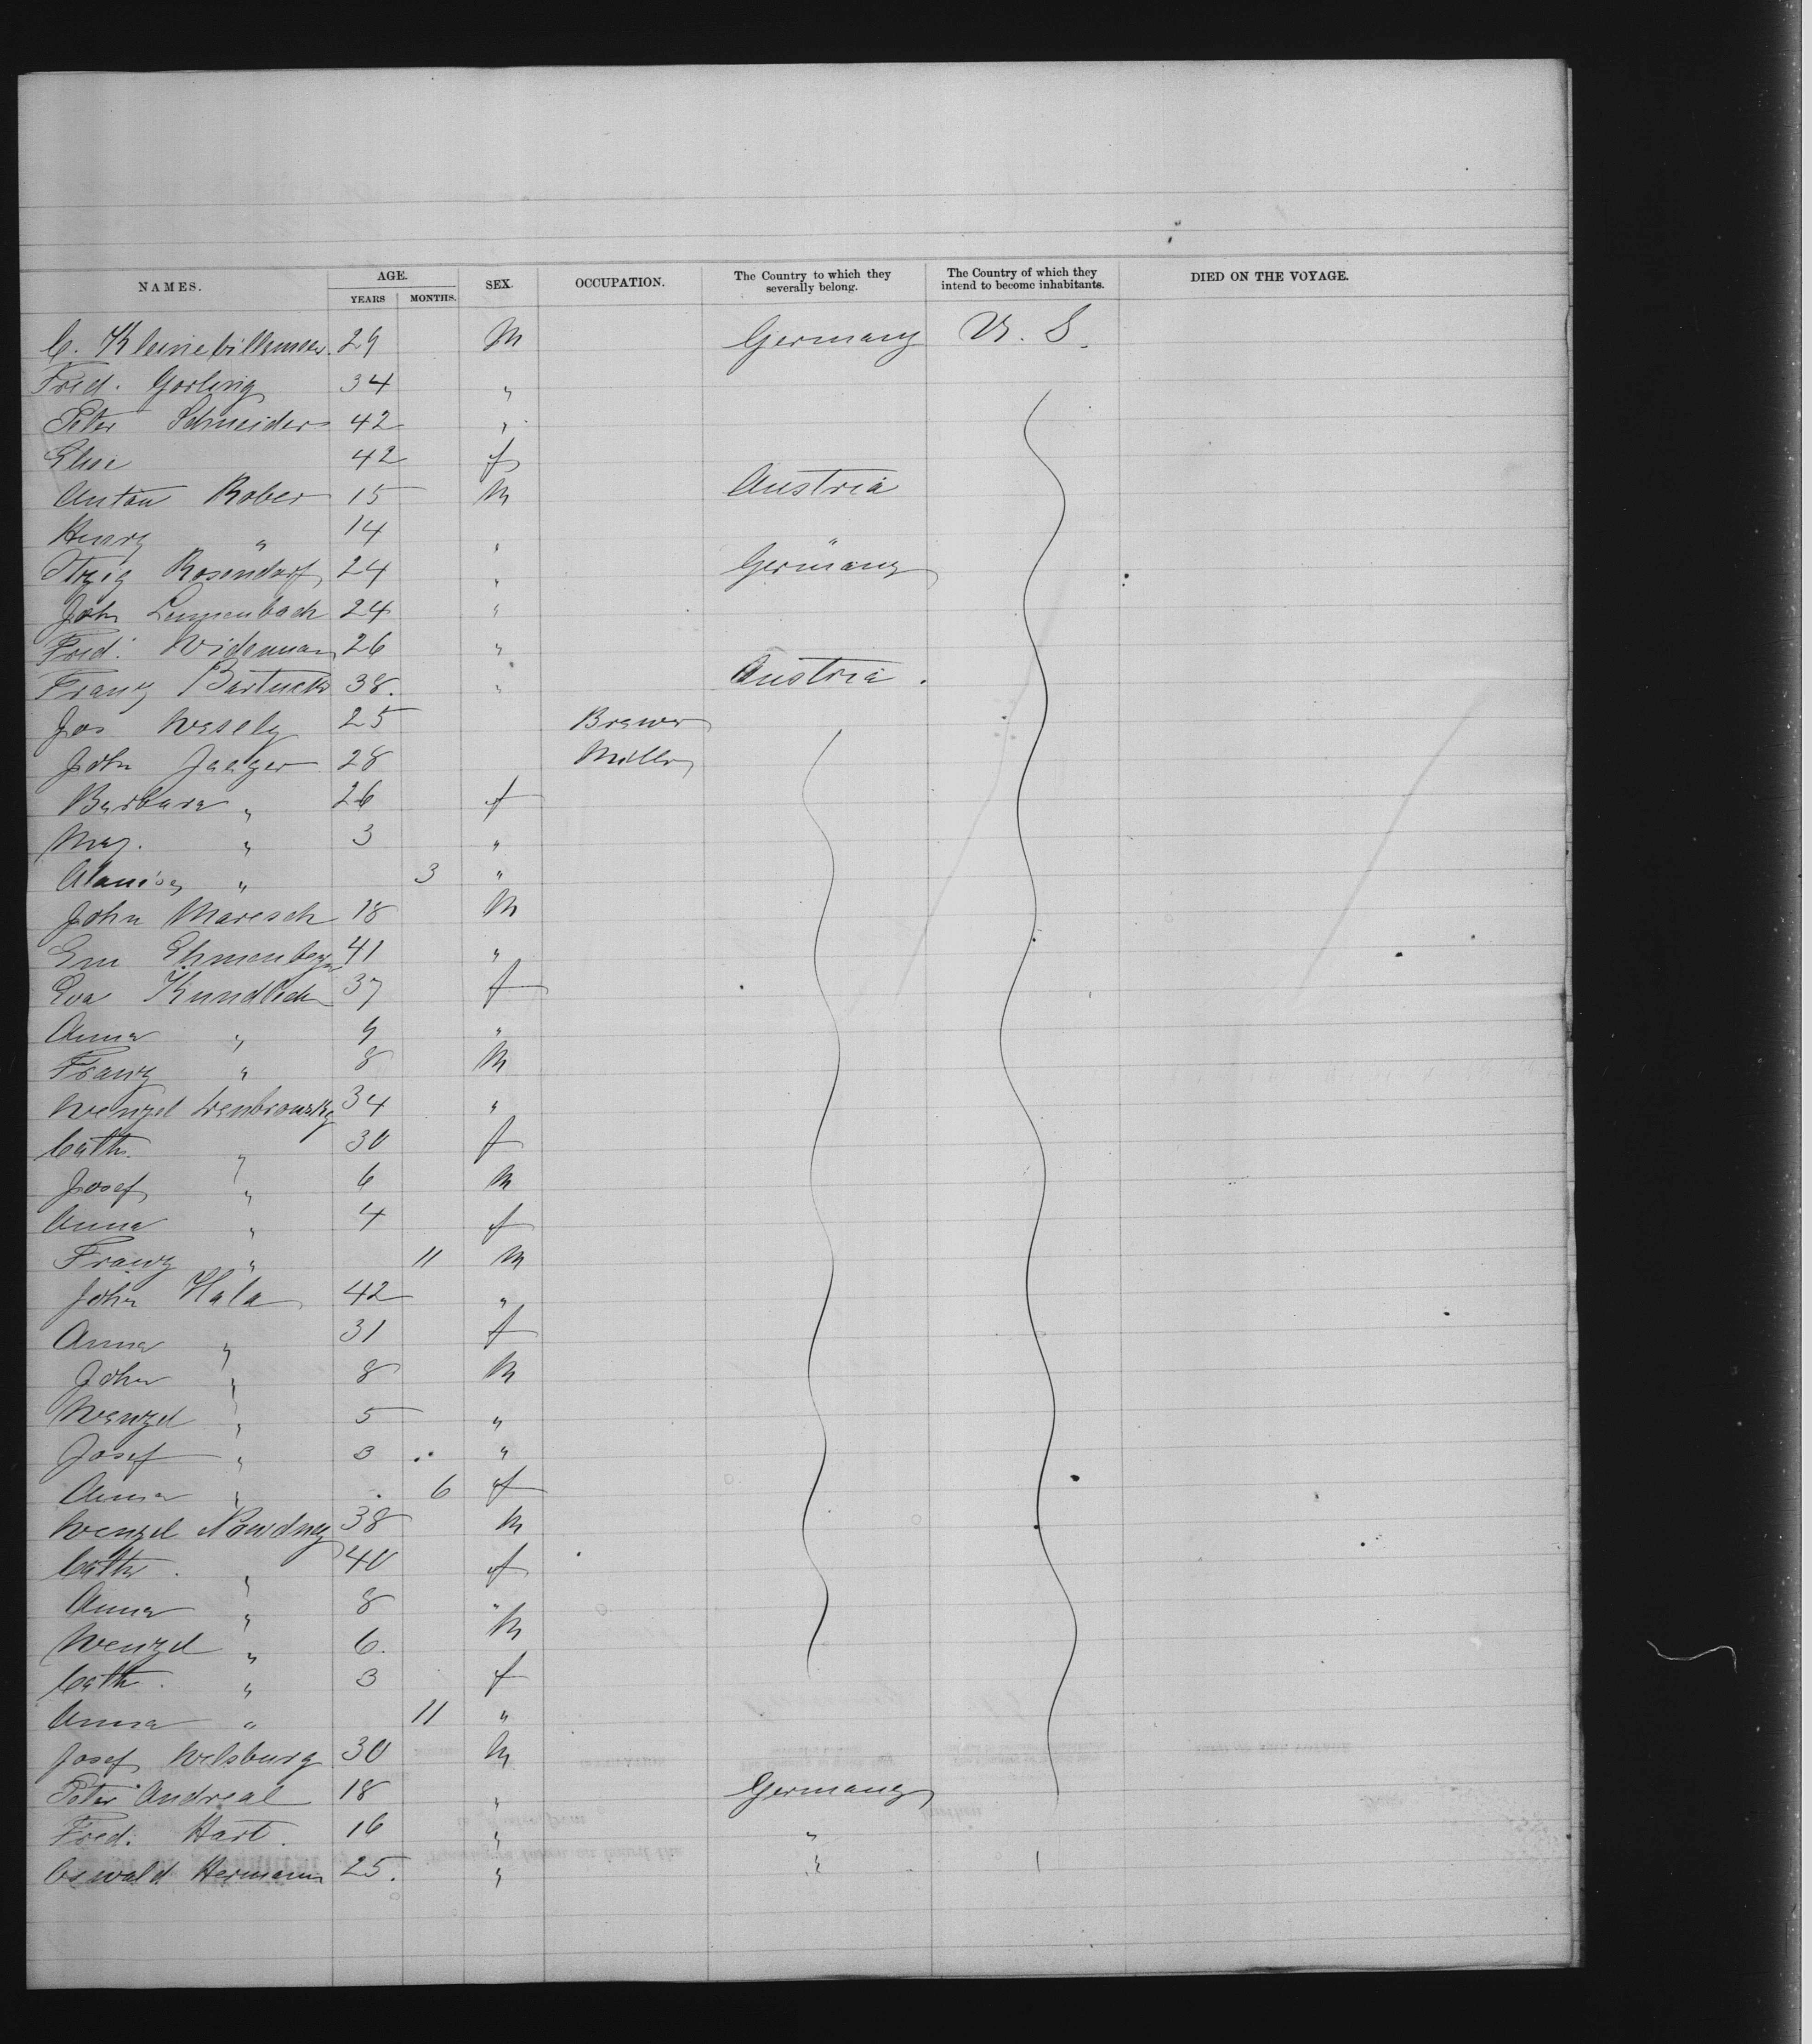 NAMES. AGE. YEARS MONTHS. SEX. OCCUPATION. The Country to which they severally belong. The Country of which they intend to become inhabitants. DIED ON THE VOYAGE.
C. 29 M Germany U. S.
Fred. Gorling 34 "
Peter Schneider 42 "
Elise 42 f
Anton Rober 15 M Austria
Henry " 14 " "
Itzig Rosendorf 24 " Germany
John Lennenbach 24 "
Fred. Wideman 26 "
Franz Bartuck 38. " Austria.
Jos Wesely 25 Brewer
John Jaeger 28 Miller
Barbara " 26 f
May. " 3 "
" 3 "
John Maresch 18 M
Em 41 "
Eva Kundlich 37 f
Anna " 9 "
Franz " 8 M
Wenzel 34 "
Cath. " 30 f
Josef " 6 M
Anna " 4 f
Franz " 11 M
John Hala 42 "
Anna " 31 f
John " 8 M
Wenzel " 5 "
Josef " 3 "
Anna " 6 f
Wenzel Nowdney 38 M
Cath. " 40 f
Anna " 8 "
Wenzel " 6. M
Cath. " 3 f
Anna " 11 "
Josef Welsburg 30 M
Peter Andreal 18 " Germany
Fred. Hart. 16 " "
Oswald Hermann 25. " "